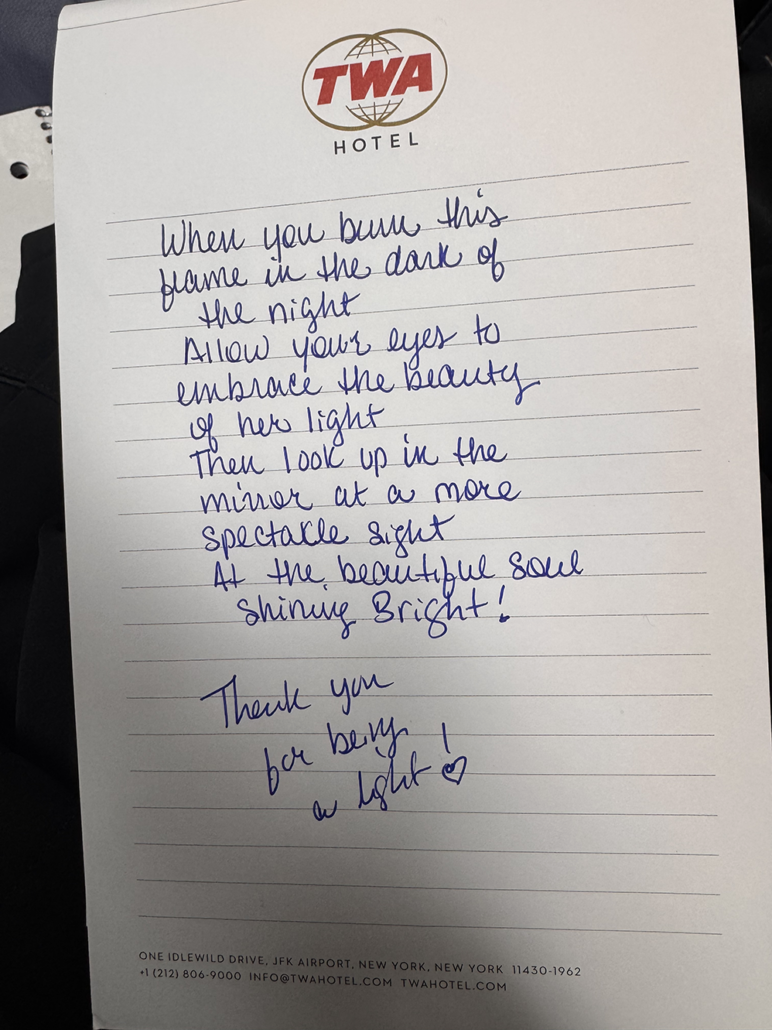 TWA
HOTEL
When you burn this
flame in the dark of
the night
Allow your eyes to
embrace the beauty
of her light
Then look up in the
mirror at a more
spectacle sight
At the beautiful soul
Shining Bright!
Thank you
for being
a light! ♡
ONE IDLEWILD DRIVE, JFK AIRPORT, NEW YORK, NEW YORK 11430-1962
+1 (212) 806-9000 INFO@TWAHOTEL.COM TWAHOTEL.COM